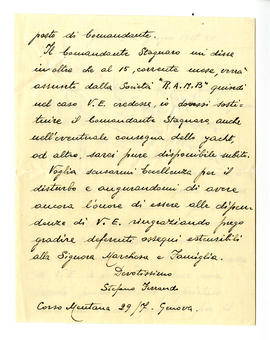 posto di Comandante.
Il Comandante Stagnaro mi disse
inoltre che al 15, corrente mese, verrà
assunto dalla Società "R.A.M.B" quindi
nel caso V.E. credesse, io dovessi sosti-
tuire il Comandante Stagnaro, anche
nell'eventuale consegna dello yacht,
od altro, sarei pure disponibile subito.
Voglia scusarmi Eccellenza per il
disturbo e augurandomi di avere
ancora l'onore di essere alle dipen-
denze di V.E. ringraziando prego
gradire deferenti ossequi estensibili
alla Signora Marchesa e Famiglia.
Devotissimo
Stefano Ferrando
Corso Mentana 29/7. Genova.